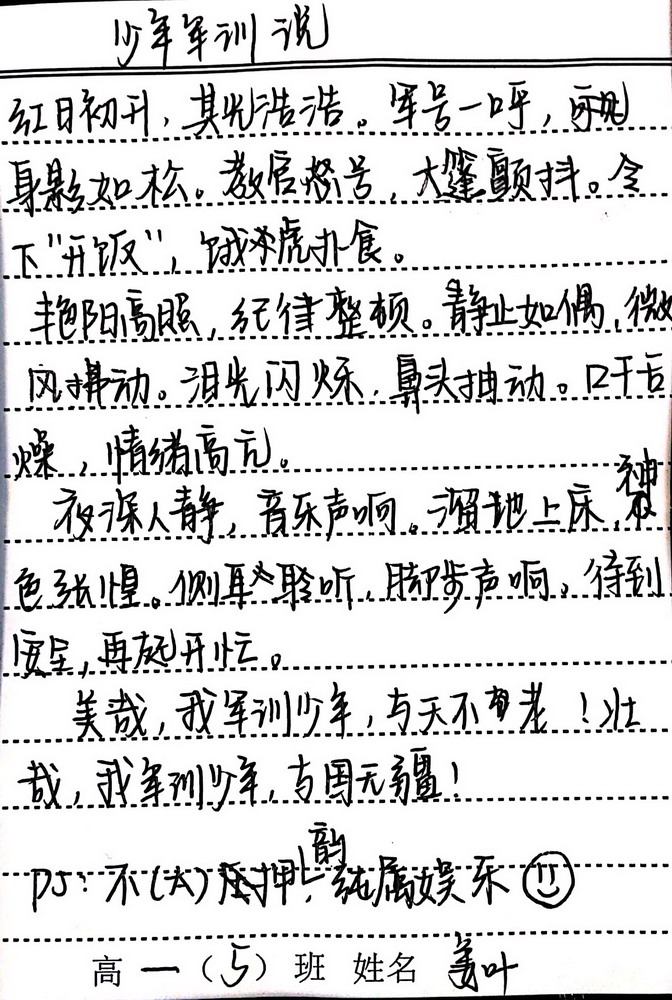 少年军训说
红日初升，其光浩浩。军号一呼，可见
身影如松。教官怒号，大篷颤抖。令
下"开饭"，饿虎扑食。
艳阳高照，纪律整顿。静止如偶，微
风拂动。泪光闪烁，鼻头抽动。口干舌
燥，情绪高亢。
夜深人静，音乐声响。溜地上床，神
色张惶。侧耳聆听，脚步声响。待到
安全，再起开忙。
美哉，我军训少年，与天不老！壮
哉，我军训少年，与国无疆！
PS：不(太)押韵，纯属娱乐
高一（5）班 姓名 姜叶